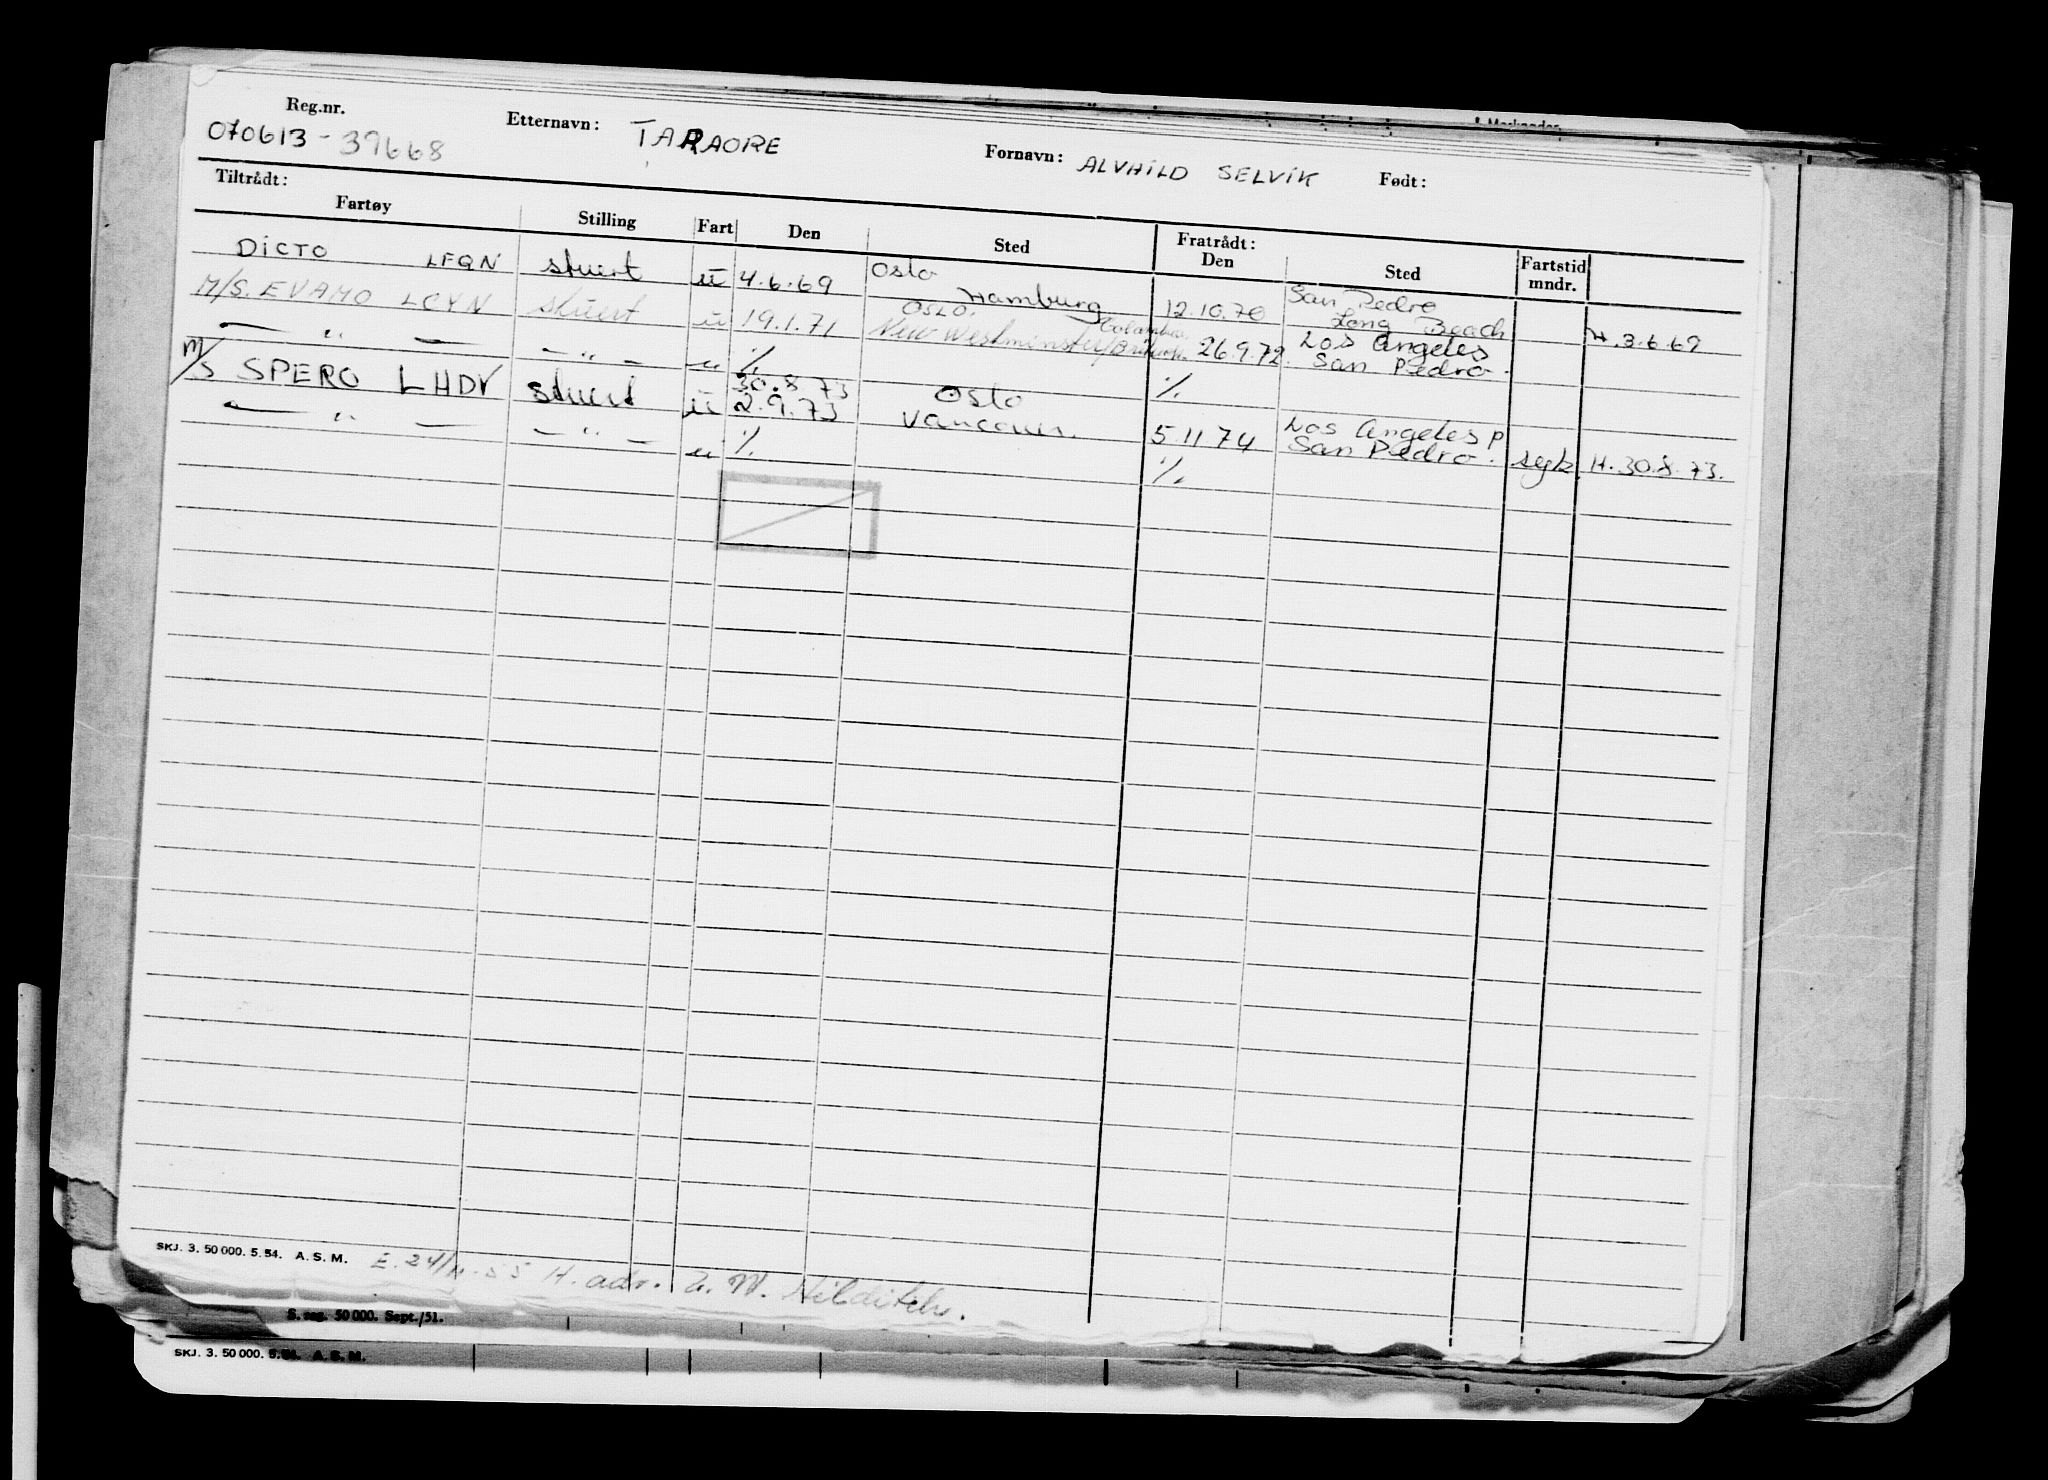 Reg.nr. Etternavn: TARAORE Fornavn: ALVHILD SELVIK Født:
070613-39668
Tiltrådt: Fratrådt:
Fartøy Stilling Fart Den Sted Den Sted Fartstid mndr.
DICTO LFQN stuert u 4.6.69 Oslo Hamburg 12.10.70 San Pedro Long Beach H.3.6.69
M/S. EVAMO LCYN stuert u 19.1.71 OSLO. New Westminster 26.9.72. Los Angeles San Pedro.
— " — — " — u %. %.
M/S SPERO LHDV stuert u 30.8.73 2.9.73 Oslo Vancouver. 5.11.74 Los Angeles P San Pedro. sygk. H.30.8.73.
— " — — " — u %. %.
SKJ. 3. 50 000. 5.54. A. S. M. E. 24/11-55 H. adr.
50 000. Sept./51.
SKJ. 3. 50 000. 5.54. A. S. M.